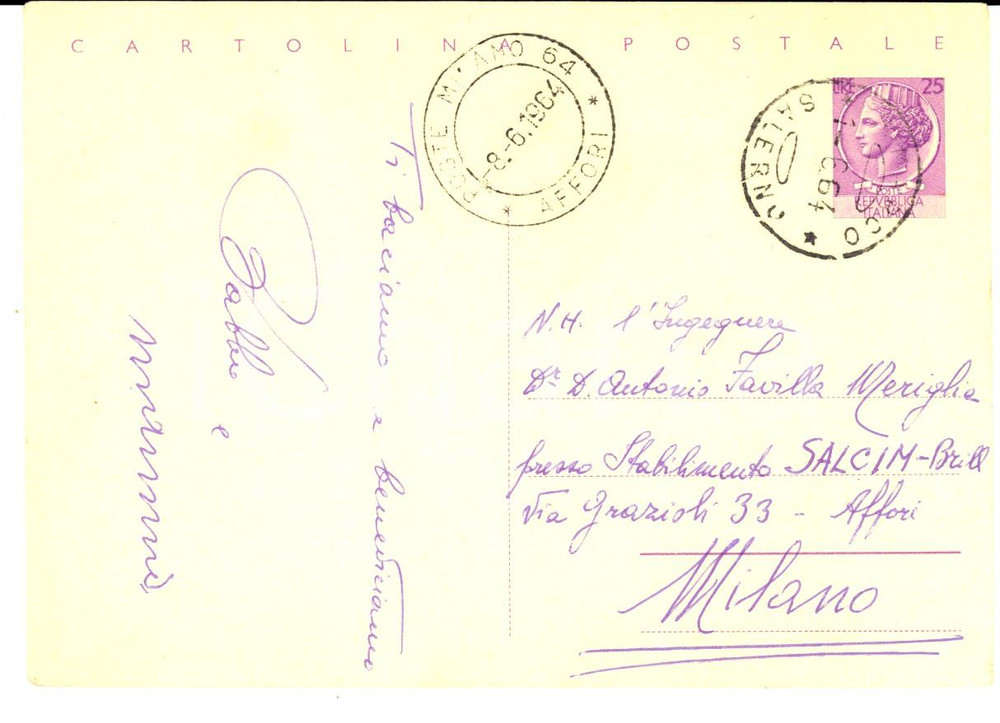 CARTOLINA POSTALE
POSTE MILANO 64
-8.-6.1964
* AFFORI *
SALERNO
6.64
LIRE 25
POSTE
REPVBBLICA
ITALIANA
Ti baciamo e benediciamo
Babbo e
N.H. l'Ingegnere
Dr D. Antonio Favilla Meriglia
presso Stabilimento SALCIM-Brill
Via Grazioli 33 - Affori
Milano